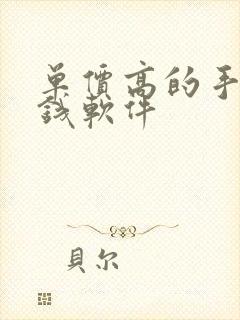 單價高的手
錢軟件
貝尔